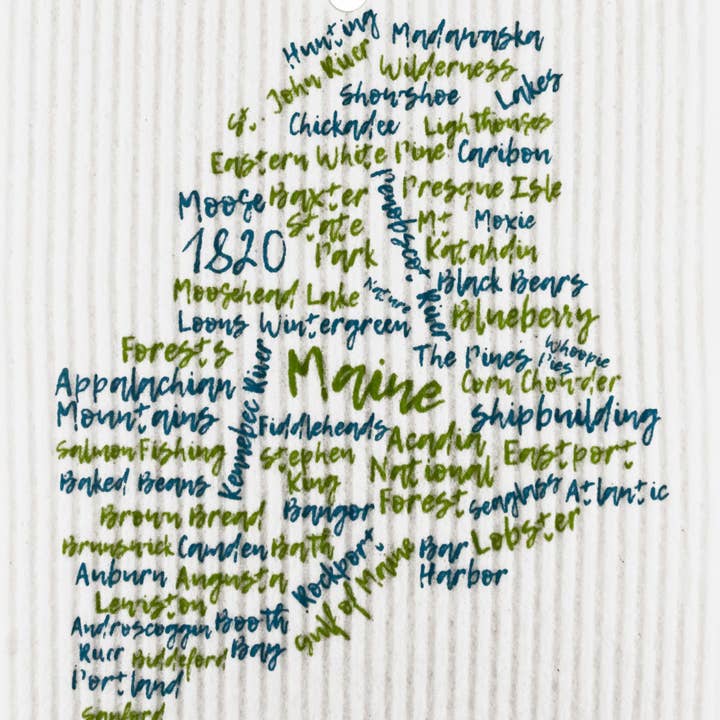 Hunting
Madawaska
St. John River
Wilderness
Snowshoe
Lakes
Chickadee
Lighthouses
Eastern White Pine
Caribou
Moose
Baxter
State
Park
Penobscot River
Presque Isle
Mt
Katahdin
Moxie
1820
Black Bears
Moosehead Lake
Nature
Blueberry
Loons
Wintergreen
Forests
Kennebec River
Maine
The Pines
Whoopie
Pies
Appalachian
Mountains
Corn Chowder
Shipbuilding
Fiddleheads
Salmon Fishing
Stephen
King
Acadia
National
Forest
Eastport
Baked Beans
Seaglass
Atlantic
Brown Bread
Bangor
Lobster
Brunswick
Camden
Bath
Rockport
Gulf of Maine
Bar
Harbor
Auburn
Augusta
Lewiston
Androscoggin
Booth
Bay
Rurr
Biddeford
Portland
Sanford